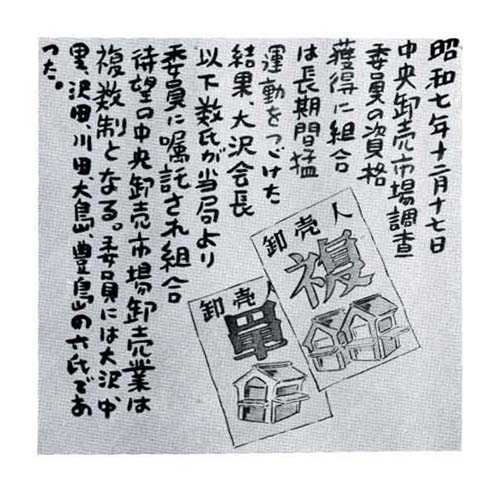 昭和七年十二月十七日
中央卸売市場調査
委員の資格
獲得に組合
は長期間猛
運動をつゞけた
結果、大沢会長
以下数氏が当局より
委員に嘱託され組合
待望の中央卸売市場卸売業は
複数制となる。委員には大沢、中
里、沢田、川田、大島、豊島の六氏であ
つた。
卸売人
複
卸売人
單